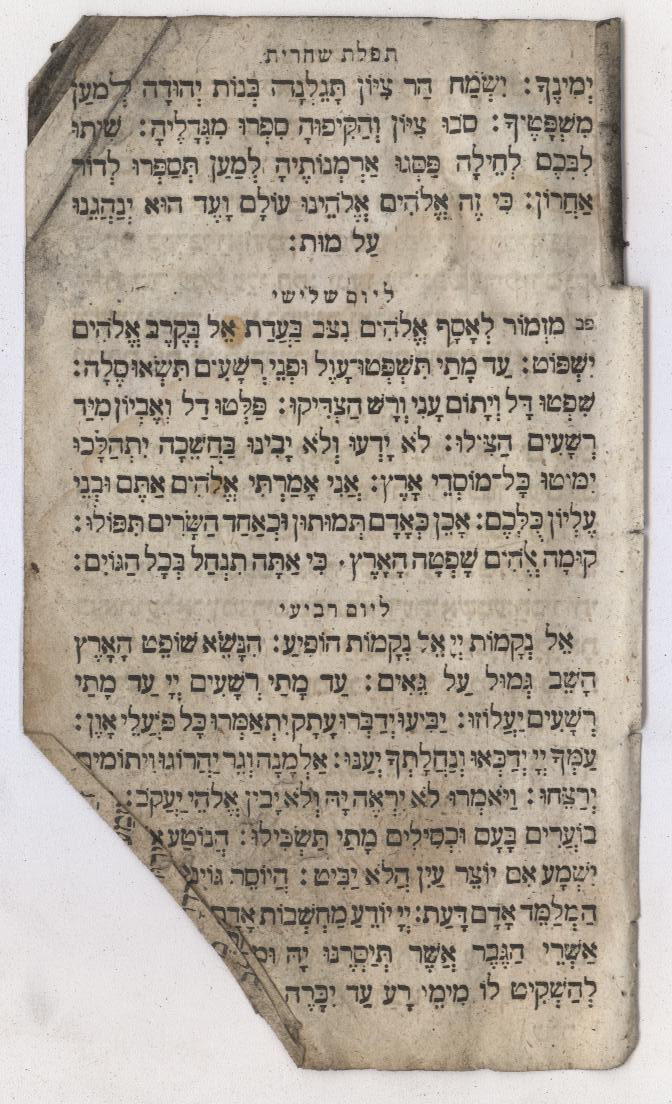 תפלת שחרית
יְמִינֶךָ: יִשְׂמַח הַר צִיּוֹן תָּגֵלְנָה בְּנוֹת יְהוּדָה לְמַעַן
מִשְׁפָּטֶיךָ: סֹבּוּ צִיּוֹן וְהַקִּיפוּהָ סִפְרוּ מִגְדָּלֶיהָ: שִׁיתוּ
לִבְּכֶם לְחֵילָה פַּסְּגוּ אַרְמְנוֹתֶיהָ לְמַעַן תְּסַפְּרוּ לְדוֹר
אַחֲרוֹן: כִּי זֶה אֱלֹהִים אֱלֹהֵינוּ עוֹלָם וָעֶד הוּא יְנַהֲגֵנוּ
עַל מוּת:
ליום שלישי
פב מִזְמוֹר לְאָסָף אֱלֹהִים נִצָּב בַּעֲדַת אֵל בְּקֶרֶב אֱלֹהִים
יִשְׁפּוֹט: עַד מָתַי תִּשְׁפְּטוּ־עָוֶל וּפְנֵי רְשָׁעִים תִּשְׂאוּ סֶלָה:
שִׁפְטוּ דָל וְיָתוֹם עָנִי וָרָשׁ הַצְדִּיקוּ: פַּלְּטוּ דַל וְאֶבְיוֹן מִיַּד
רְשָׁעִים הַצִּילוּ: לֹא יָדְעוּ וְלֹא יָבִינוּ בַּחֲשֵׁכָה יִתְהַלָּכוּ
יִמּוֹטוּ כָּל־מוֹסְדֵי אָרֶץ: אֲנִי אָמַרְתִּי אֱלֹהִים אַתֶּם וּבְנֵי
עֶלְיוֹן כֻּלְּכֶם: אָכֵן כְּאָדָם תְּמוּתוּן וּכְאַחַד הַשָּׂרִים תִּפּוֹלוּ:
קוּמָה אֱלֹהִים שָׁפְטָה הָאָרֶץ. כִּי אַתָּה תִנְחַל בְּכָל הַגּוֹיִם:
ליום רביעי
אֵל נְקָמוֹת יְיָ אֵל נְקָמוֹת הוֹפִיעַ: הִנָּשֵׂא שׁוֹפֵט הָאָרֶץ
הָשֵׁב גְּמוּל עַל גֵּאִים: עַד מָתַי רְשָׁעִים יְיָ עַד מָתַי
רְשָׁעִים יַעֲלוֹזוּ: יַבִּיעוּ יְדַבְּרוּ עָתָק יִתְאַמְּרוּ כָּל פּוֹעֲלֵי אָוֶן:
עַמְּךָ יְיָ יְדַכְּאוּ וְנַחֲלָתְךָ יְעַנּוּ: אַלְמָנָה וְגֵר יַהֲרוֹגוּ וִיתוֹמִים
יְרַצֵּחוּ: וַיֹּאמְרוּ לֹא יִרְאֶה יָהּ וְלֹא יָבִין אֱלֹהֵי יַעֲקֹב:
בּוֹעֲרִים בָּעָם וּכְסִילִים מָתַי תַּשְׂכִּילוּ: הֲנוֹטַע
יִשְׁמָע אִם יוֹצֵר עַיִן הֲלֹא יַבִּיט: הֲיוֹסֵר גּוֹיִם
הַמְלַמֵּד אָדָם דָּעַת: יְיָ יוֹדֵעַ מַחְשְׁבוֹת אָדָם
אַשְׁרֵי הַגֶּבֶר אֲשֶׁר תְּיַסְּרֶנּוּ יָהּ
לְהַשְׁקִיט לוֹ מִימֵי רָע עַד יִכָּרֶה